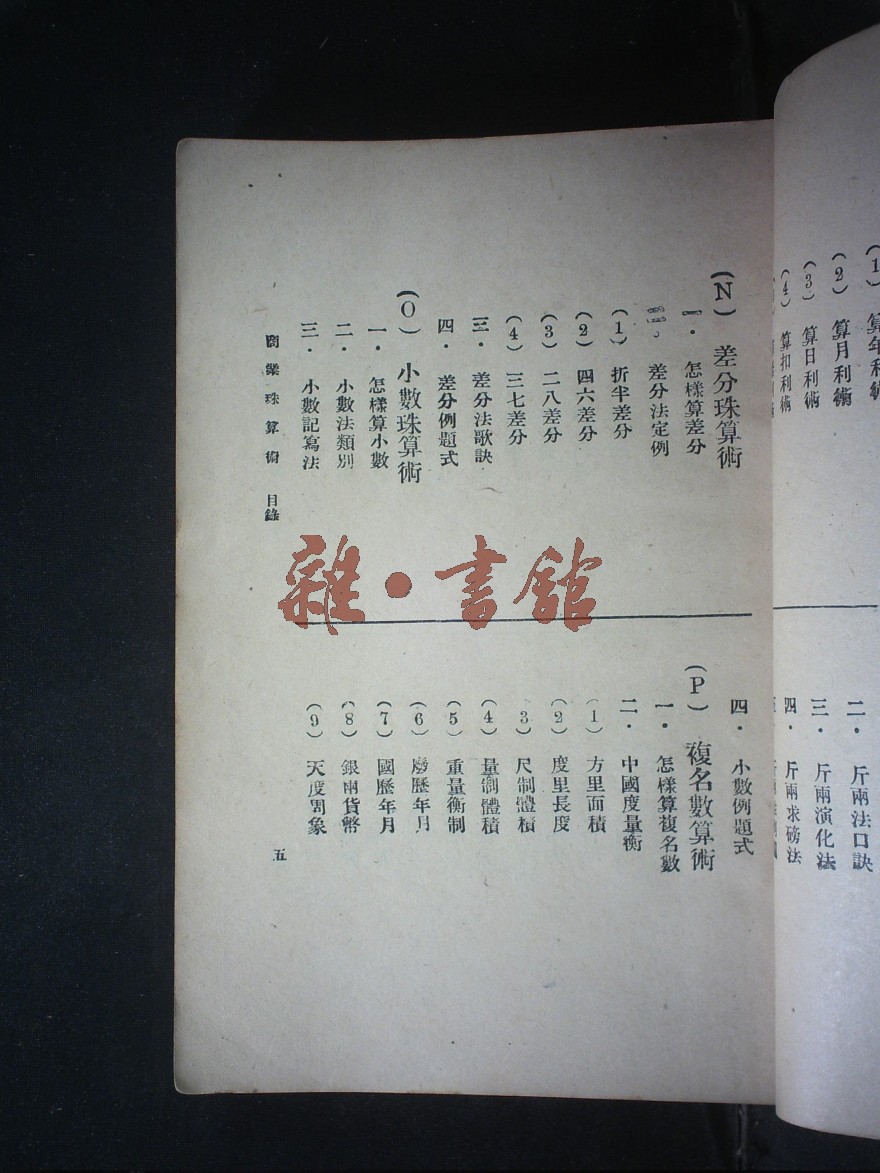 (1) 算年利術
(2) 算月利術
(3) 算日利術
(4) 算扣利術
二・斤兩法口訣
三・斤兩演化法
四・斤兩求磅法
(N) 差分珠算術
一・怎樣算差分
差分法定例
(1) 折半差分
(2) 四六差分
(3) 二八差分
(4) 三七差分
三・差分法歌訣
四・差分例題式
(O) 小數珠算術
一・怎樣算小數
二・小數法類別
三・小數記寫法
四・小數例題式
(P) 複名數算術
一・怎樣算複名數
二・中國度量衡
(1) 方里面積
(2) 度里長度
(3) 尺制體積
(4) 量制體積
(5) 重量衡制
(6) 廢歷年月
(7) 國歷年月
(8) 銀兩貨幣
(9) 天度周象
商業珠算術 目錄
五
雜・書館